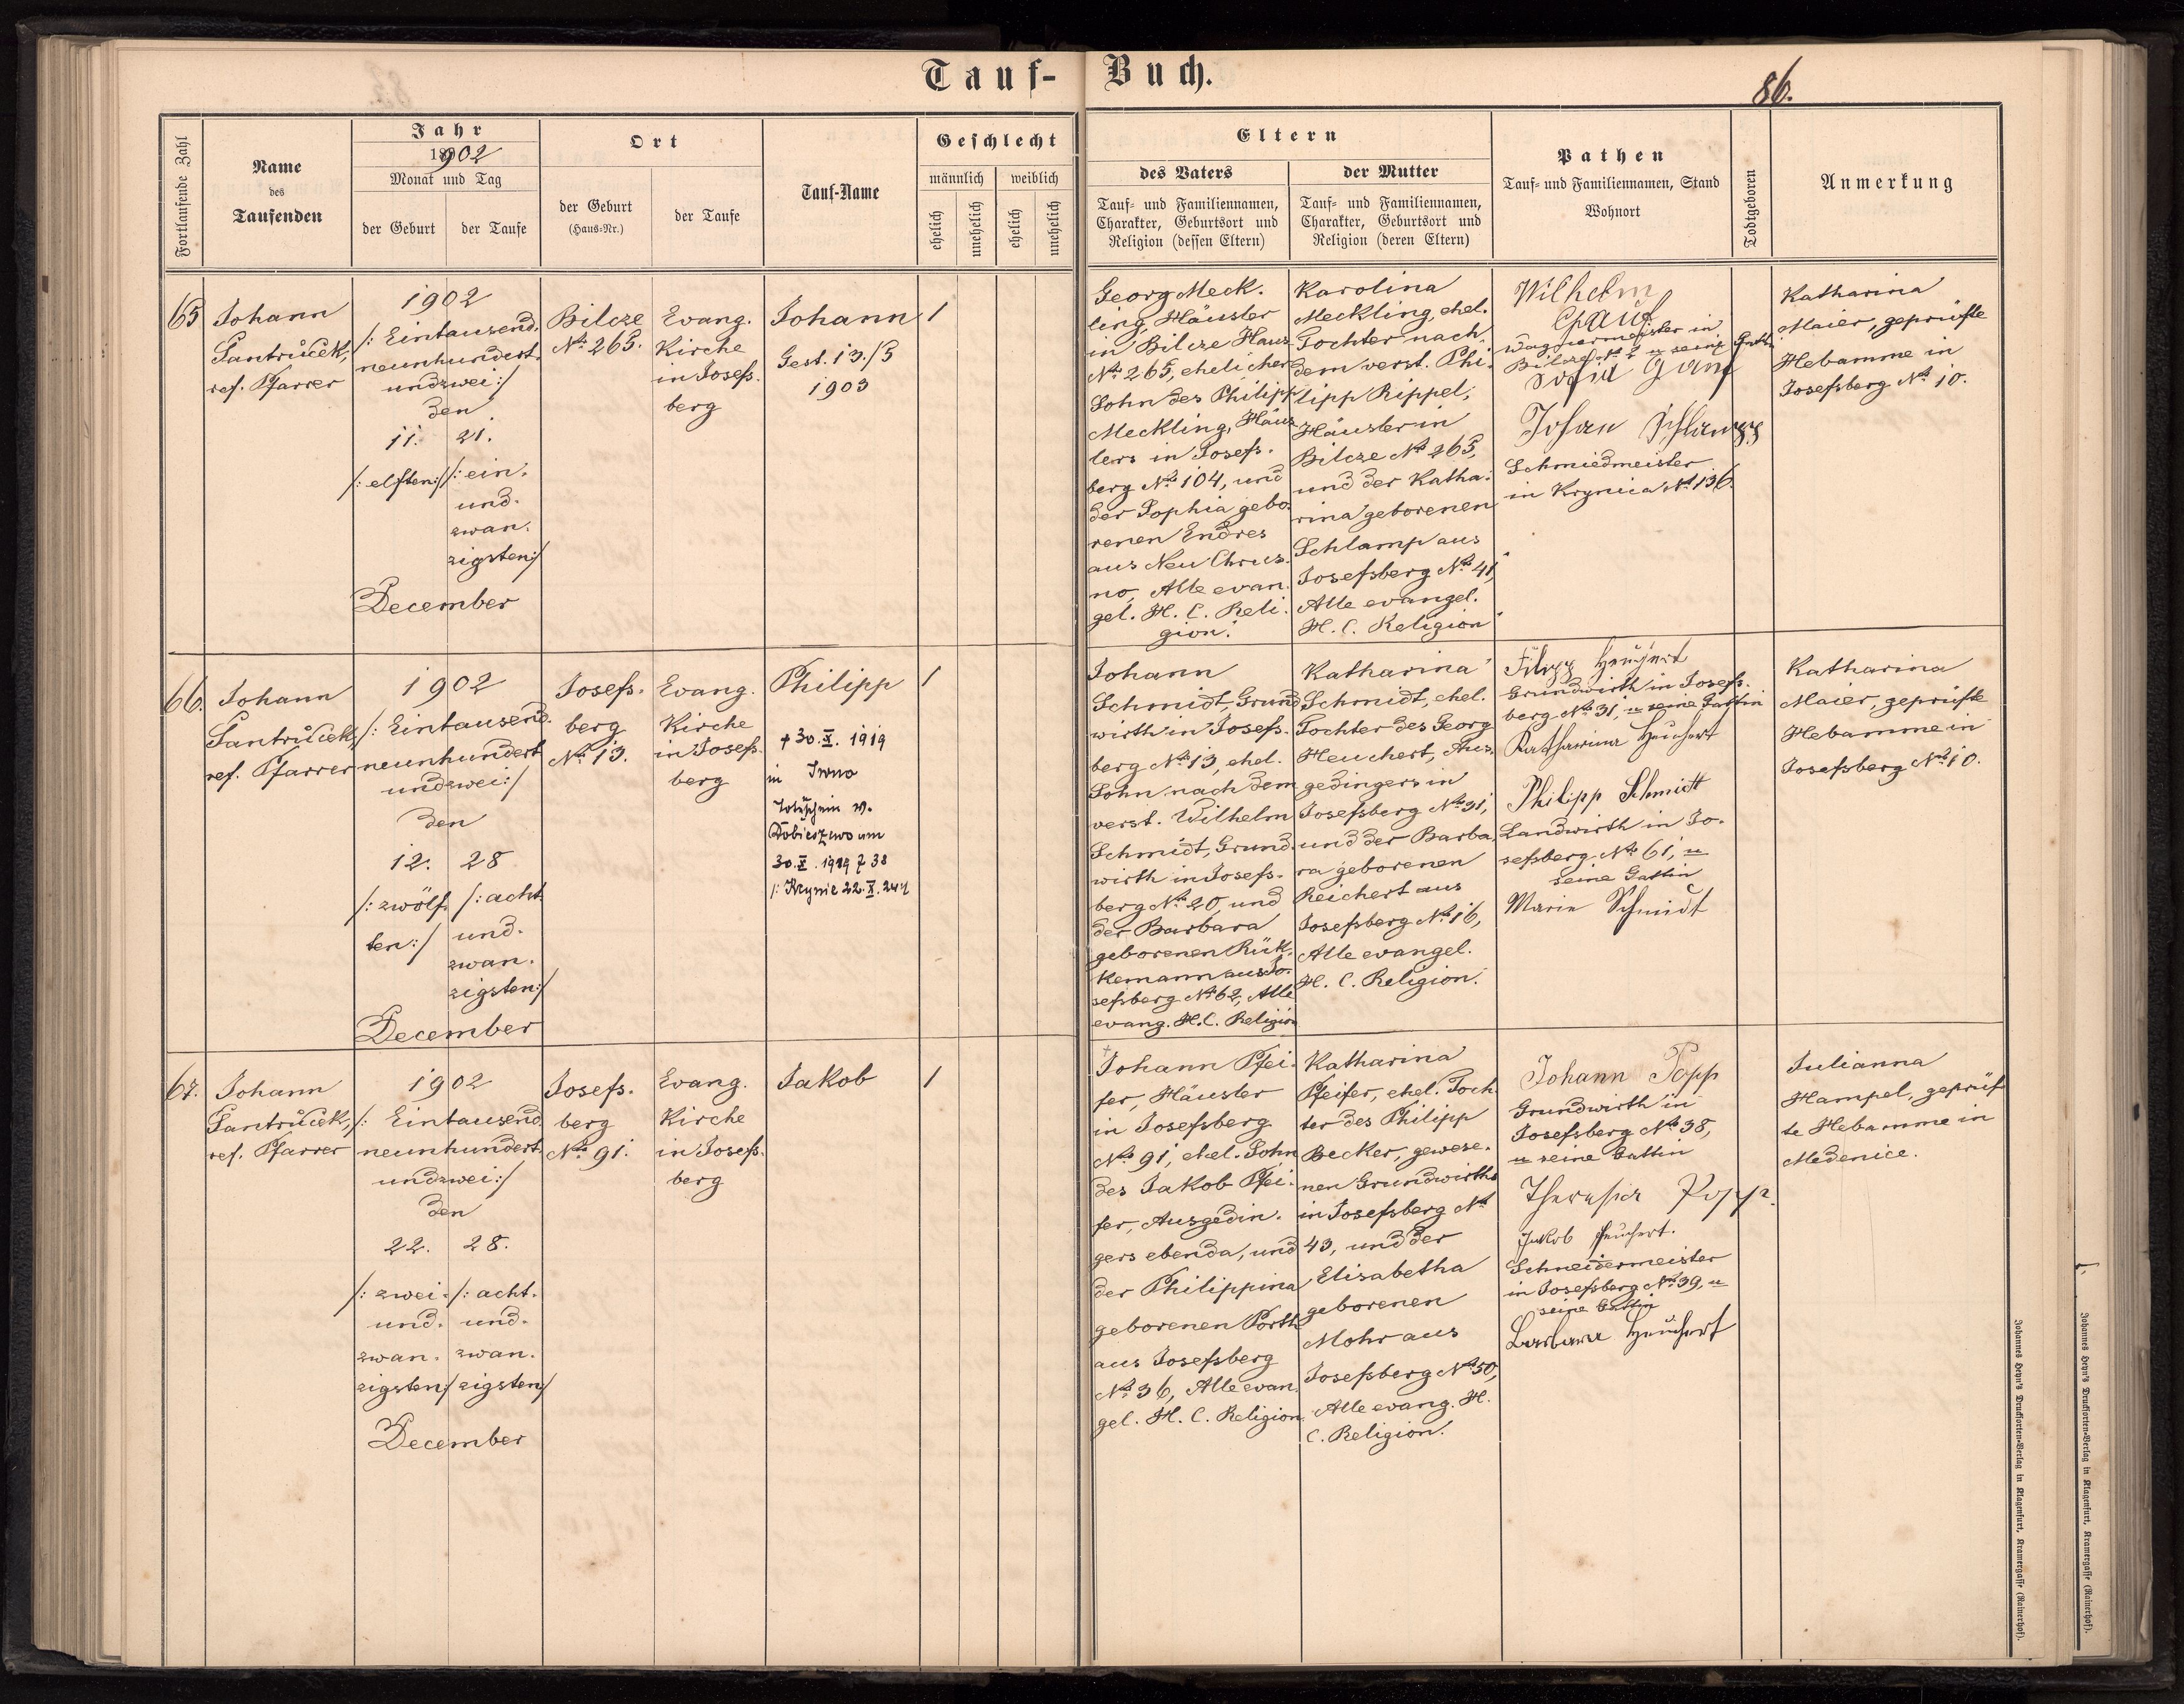 Tauf- Buch.
86.
Fortlaufende Zahl
Name
des
Taufenden
Jahr
18
902
Monat und Tag
der Geburt
der Taufe
Ort
der Geburt
(Haus-Nr.)
der Taufe
Tauf-Name
Geschlecht
männlich
weiblich
ehelich
unehelich
ehelich
unehelich
Eltern
des Vaters
Tauf- und Familiennamen,
Charakter, Geburtsort und
Religion (dessen Eltern)
der Mutter
Tauf- und Familiennamen,
Charakter, Geburtsort und
Religion (deren Eltern)
Pathen
Tauf- und Familiennamen, Stand
Wohnort
Todtgeboren
Anmerkung
65
Johann
Jantruček,
ref. Pfarrer
1902
/: Eintausend.
neunhundert.
undzwei :/
den
11. 21.
/: elften :/ /: ein.
und.
zwan.
zigsten :/
December
Bilcze
No. 265.
Evang.
Kirche
in Josefs.
berg
Johann
Gest. 13./3
1903
1
Georg Meck.
ling, Häusler
in Bilcze Haus
No. 265, ehelicher
Sohn des Philipp
Meckling, Häus
lers in Josefs.
berg No. 104, und
der Sophia gebo.
renen Endres
aus Neu Chrus.
no, Alle evan.
gel. H. C. Reli.
gion.
Karolina
Meckling, ehel.
Tochter nach
dem verst. Phi.
lipp Rippel,
Häusler in
Bilcze No. 265,
und der Katha.
rina geborenen
Schlamp aus
Josefsberg No. 41,
Alle evangel.
H. C. Religion
Wilhelm
Wagnermeister in
Bilcze No. 2 u seine Gattin
Sofia
Johan
Schmiedmeister
in Krynica No. 136.
Katharina
Maier, geprüfte
Hebamme in
Josefsberg No. 10.
66.
Johann
Jantruček,
ref. Pfarrer
1902
/: Eintausend.
neunhundert
undzwei :/
den
12. 28
/: zwölf. /: acht
ten :/ und.
zwan.
zigsten :/
December
Josefs.
berg
No. 13.
Evang.
Kirche
in Josefs.
berg
Philipp
+ 30. X. 1919
in
30. X. 1919 Z 38
1
Johann
Schmidt, Grund
wirth in Josefs.
berg No. 13, ehel.
Sohn nach dem
verst. Wilhelm
Schmidt, Grund.
wirth in Josefs.
berg No. 20, und
der Barbara
geborenen Rük.
kemann aus Jo.
sefsberg No 62, Alle
evang. H. C. Religion
Katharina
Schmidt, ehel.
Tochter des Georg
Heuchert, Aus.
gedingers in
Josefsberg No. 31,
und der Barba.
ra geborenen
Reichert aus
Josefsberg No. 16,
Alle evangel.
H. C. Religion.
Filipp Heuchert
Grundwirth in Josefs.
berg No. 31, u seine Gattin
Katharina Heuchert
Philipp Schmidt
Landwirth in Jo.
sefsberg No. 61, u
seine Gattin
Marie Schmidt
Katharina
Maier, geprüfte
Hebamme in
Josefsberg No. 10.
67.
Johann
Jantruček,
ref. Pfarrer
1902
/: Eintausend.
neunhundert.
undzwei :/
den
22. 28.
/: zwei. /: acht.
und. und.
zwan. zwan.
zigsten :/ zigsten :/
December
Josefs.
berg
No. 91.
Evang.
Kirche
in Josefs.
berg
Jakob
1
Johann Pfei.
fer, Häusler
in Josefsberg
No. 91, ehel. Sohn
des Jakob Pfei.
fer, Ausgedin.
gers ebenda, und
der Philippina
geborenen Porth
aus Josefsberg
No. 36, Alle evan.
gel. H. C. Religion
Katharina
Pfeifer, ehel. Toch.
ter des Philipp
Becker, gewese.
nen Grundwirths
in Josefsberg No
43, und der
Elisabetha
geborenen
Mohr aus
Josefsberg No. 50,
Alle evang. H.
C. Religion.
Johann Popp
Grundwirth in
Josefsberg No. 38,
u seine Gattin
Theresia Popp.
Jakob Heuchert.
Schneidermeister
in Josefsberg No. 39, u
seine Gattin
Barbara Heuchert
Julianna
Hampel, geprüf
te Hebamme in
Medenice.
Johannes Heyn's Drucksorten-Verlag in Klagenfurt, Kramergasse (Rainerhof).
Johannes Heyn's Drucksorten-Verlag in Klagenfurt, Kramergasse (Rainerhof).